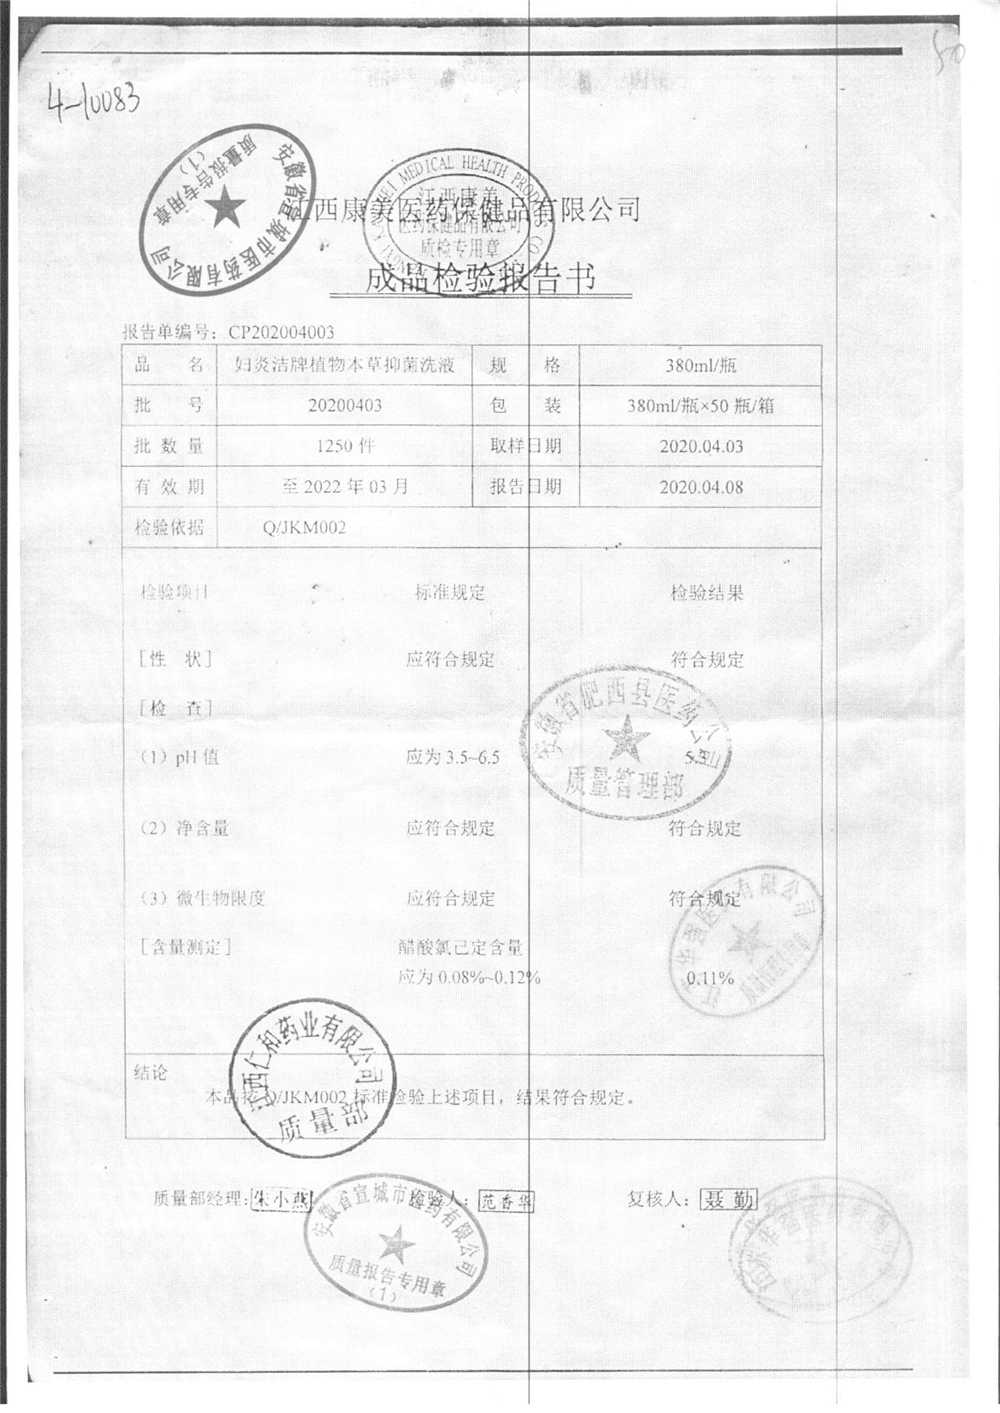 50
4-10083
安徽省宣城市医药有限公司
质量报告专用章
(1)
MEDICAL HEALTH PRODU
江西康美
医药保健品有限公司
质检专用章
江西康美医药保健品有限公司
成品检验报告书
报告单编号：CP202004003
品 名 妇炎洁牌植物本草抑菌洗液 规 格 380ml/瓶
批 号 20200403 包 装 380ml/瓶×50 瓶/箱
批 数 量 1250 件 取样日期 2020.04.03
有 效 期 至 2022 年 03 月 报告日期 2020.04.08
检验依据 Q/JKM002
检验项目 标准规定 检验结果
［性 状］ 应符合规定 符合规定
［检 查］
安徽省肥西县医药公司
质量管理部
（1）pH 值 应为 3.5~6.5 5.5
（2）净含量 应符合规定 符合规定
（3）微生物限度 应符合规定 符合规定
［含量测定］ 醋酸氯己定含量
应为 0.08%~0.12% 0.11%
江西仁和药业有限公司
质量部
结论
本品按 Q/JKM002 标准检验上述项目，结果符合规定。
质量部经理：朱小燕 检验人：范香华 复核人：聂勤
安徽省宣城市医药有限公司
质量报告专用章
(1)